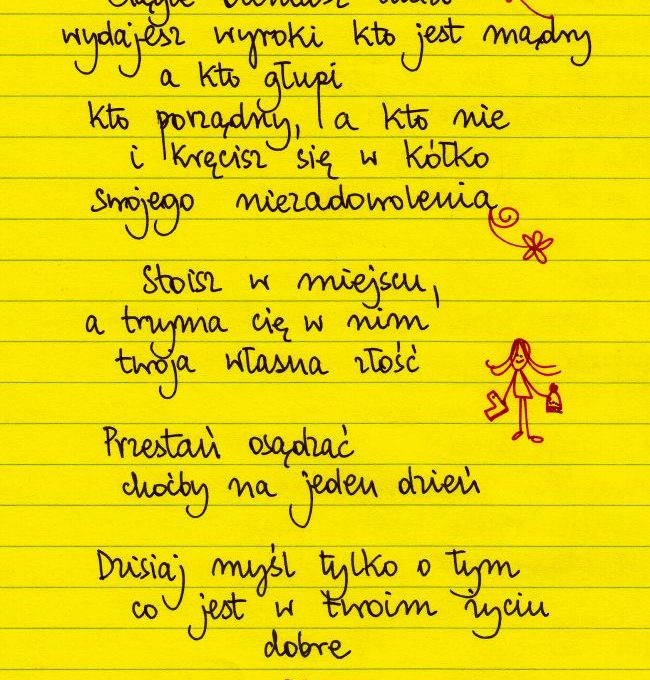 wydajesz wyroki kto jest mądry
a kto głupi
kto porządny, a kto nie
i kręcisz się w kółko
swojego niezadowolenia
Stoisz w miejscu,
a trzyma cię w nim
twoja własna złość
Przestań osądzać
choćby na jeden dzień
Dzisiaj myśl tylko o tym
co jest w twoim życiu
dobre